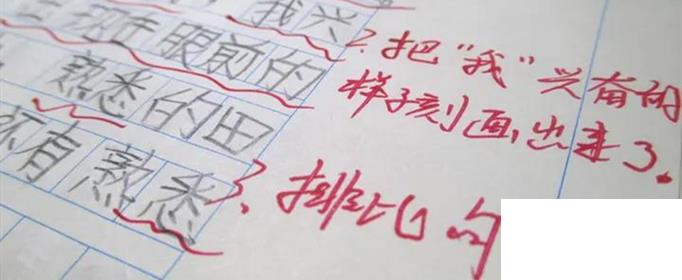 我兴
眼前的
熟悉的田
还有熟悉
2.把“我”兴奋的
样子刻画出来了。
3.排比句